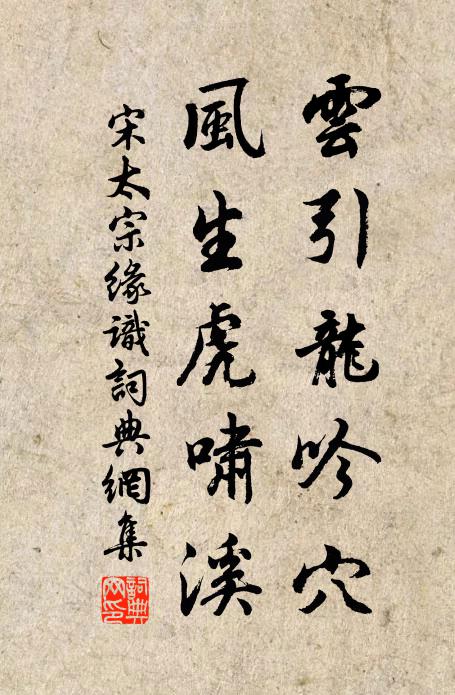 雲引龍吟穴
風生虎嘯溪
宋太宗緣識詞典網集
詞典网印